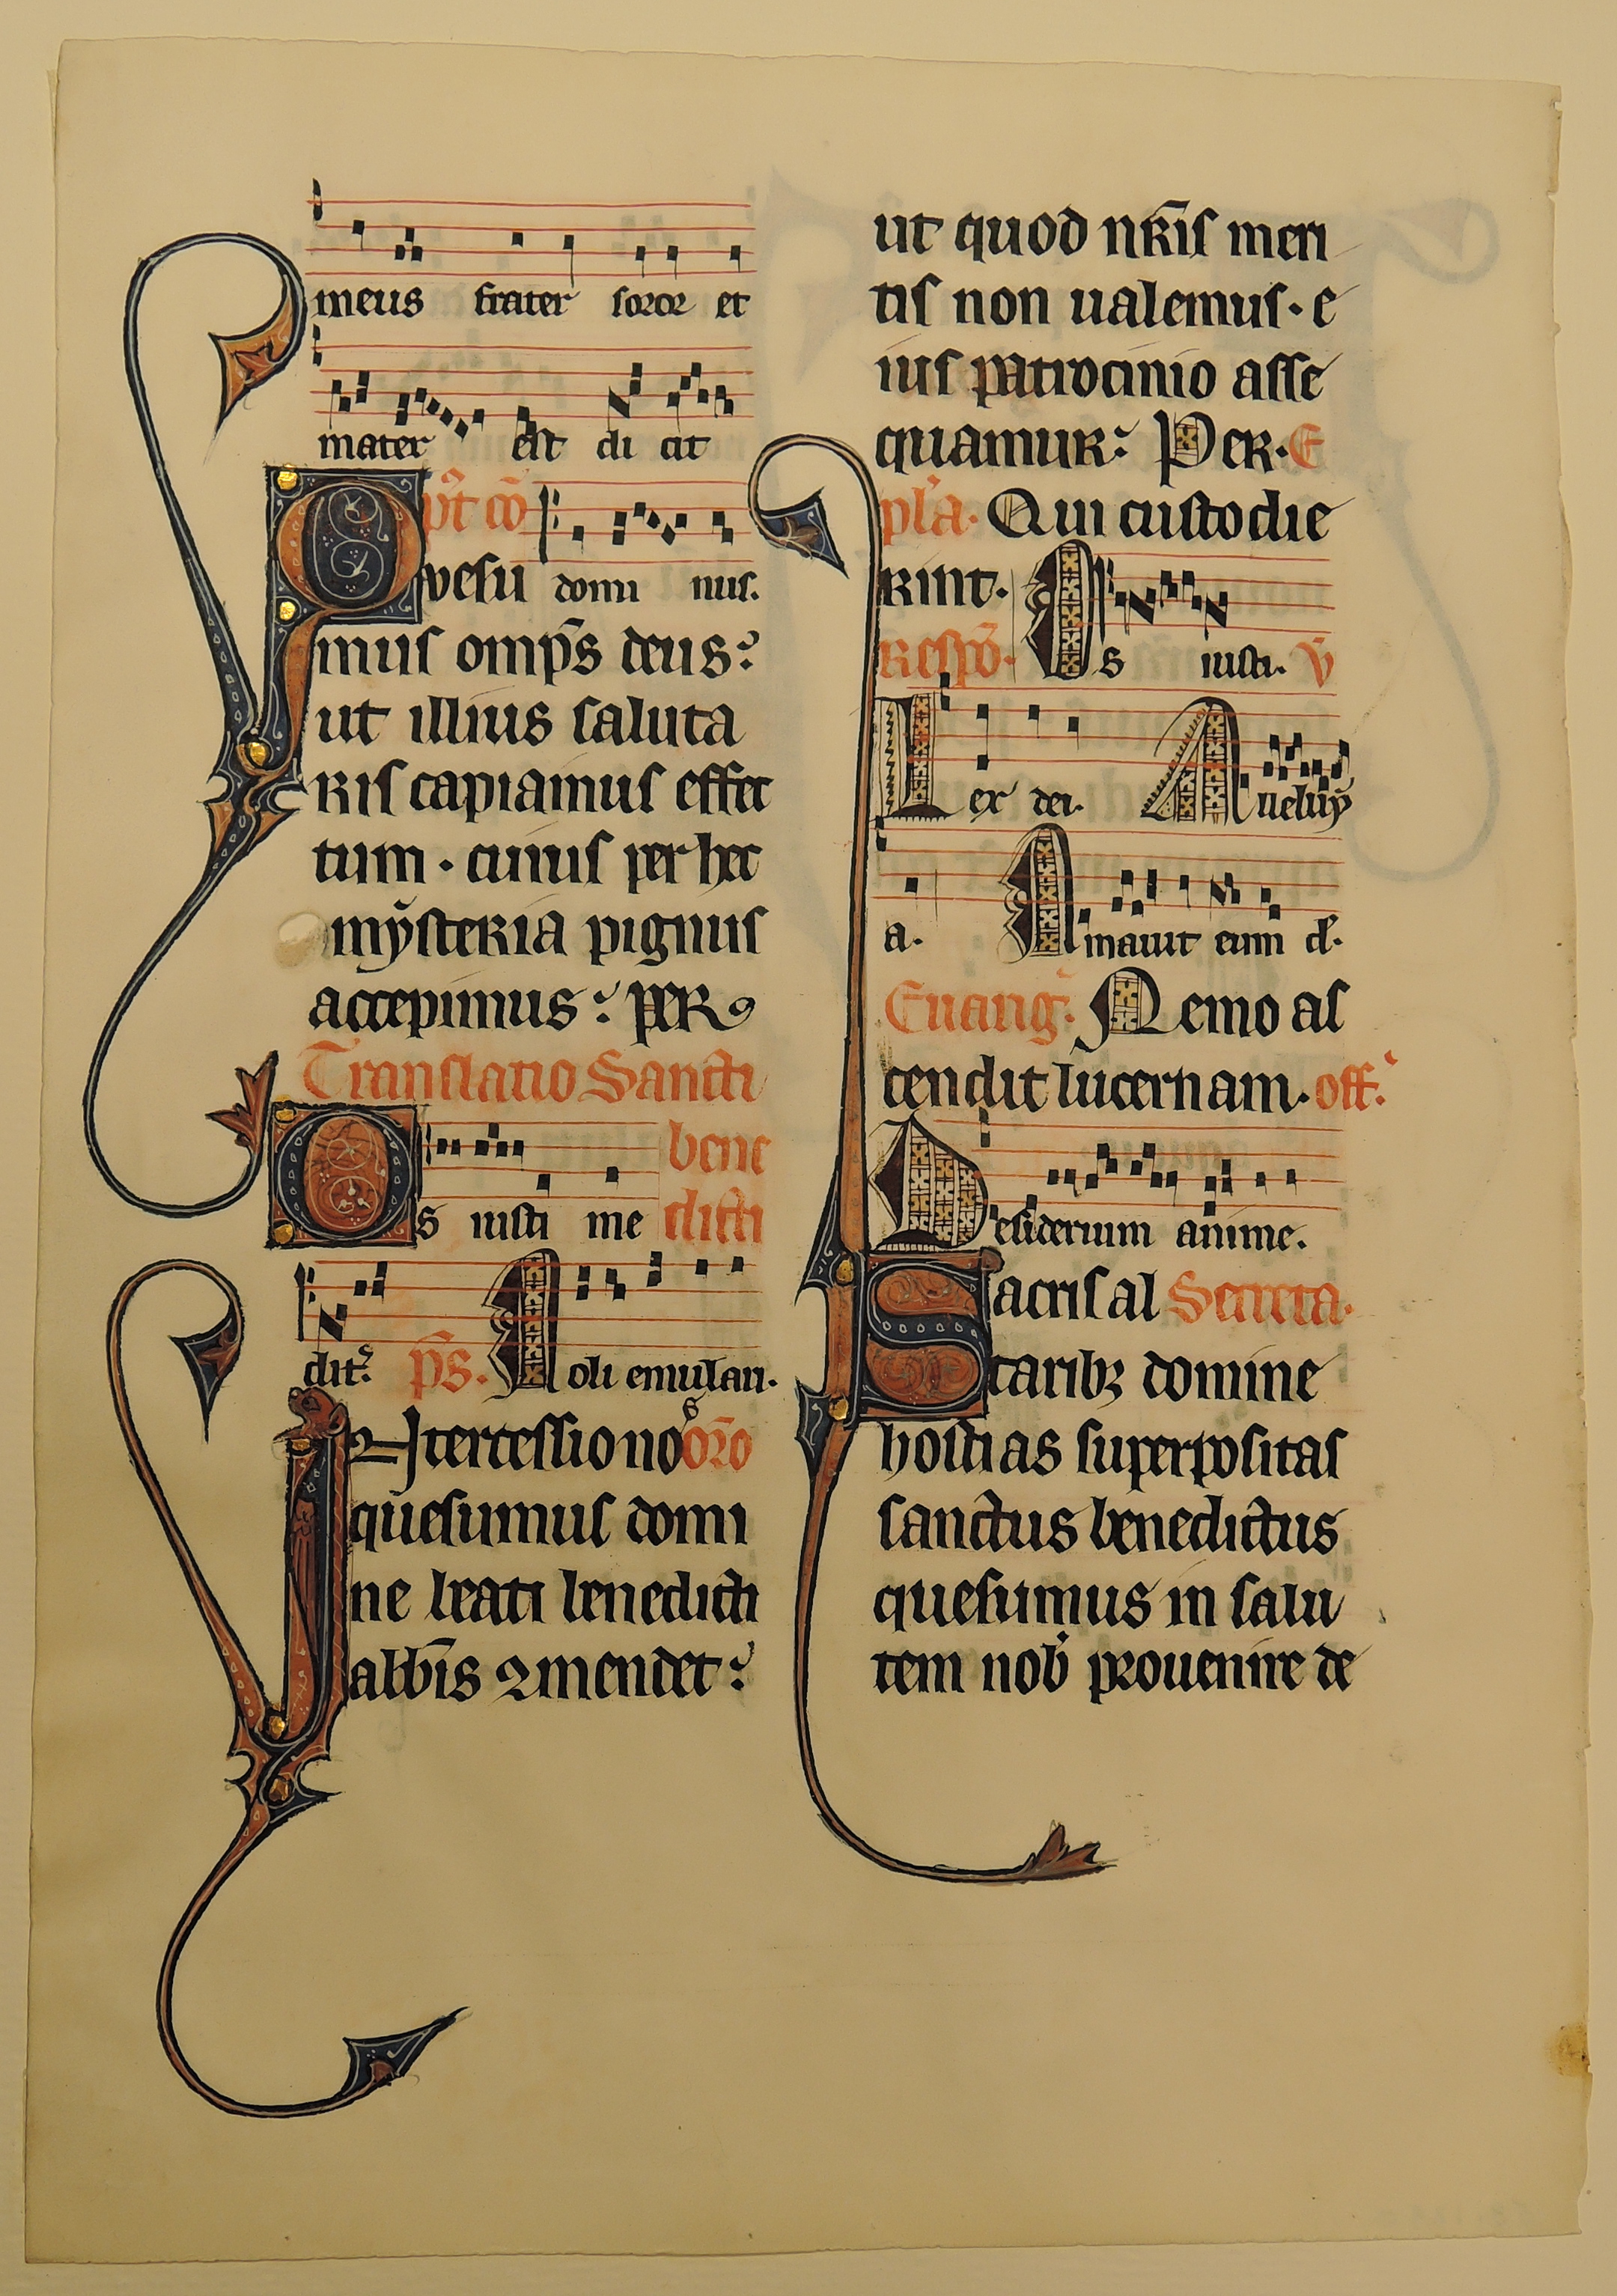 meus frater soror et
mater est di cit
pꝰt cō
Quesu domi nus.
mus omp̄s deus:
ut illius saluta
ris capiamus effec
tum · cuius per hec
mẏsteria pignus
accepimus: per
Translatio Sancti
bene
Os iusti me dicti
dit: ps. Noli emulari.
Intercessio nos oro
quesumus domi
ne beati benedicti
abb̄is ꝯmendet:
ut quod nr̄is meri
tis non ualemus · e
ius patrocinio asse
quamur: Per. E
pl'a. Qui custodie
rint.
Respō. Os iusti. V
Lex dei. Alleluy
a. Amauit eum d̄.
Euang. Nemo ac
cendit lucernam. off.
Desiderium anime.
Sacris al Secreta.
taribꝫ domine
hostias superpositas
sanctus benedictus
quesumus in salu
tem nob̄ prouenire de